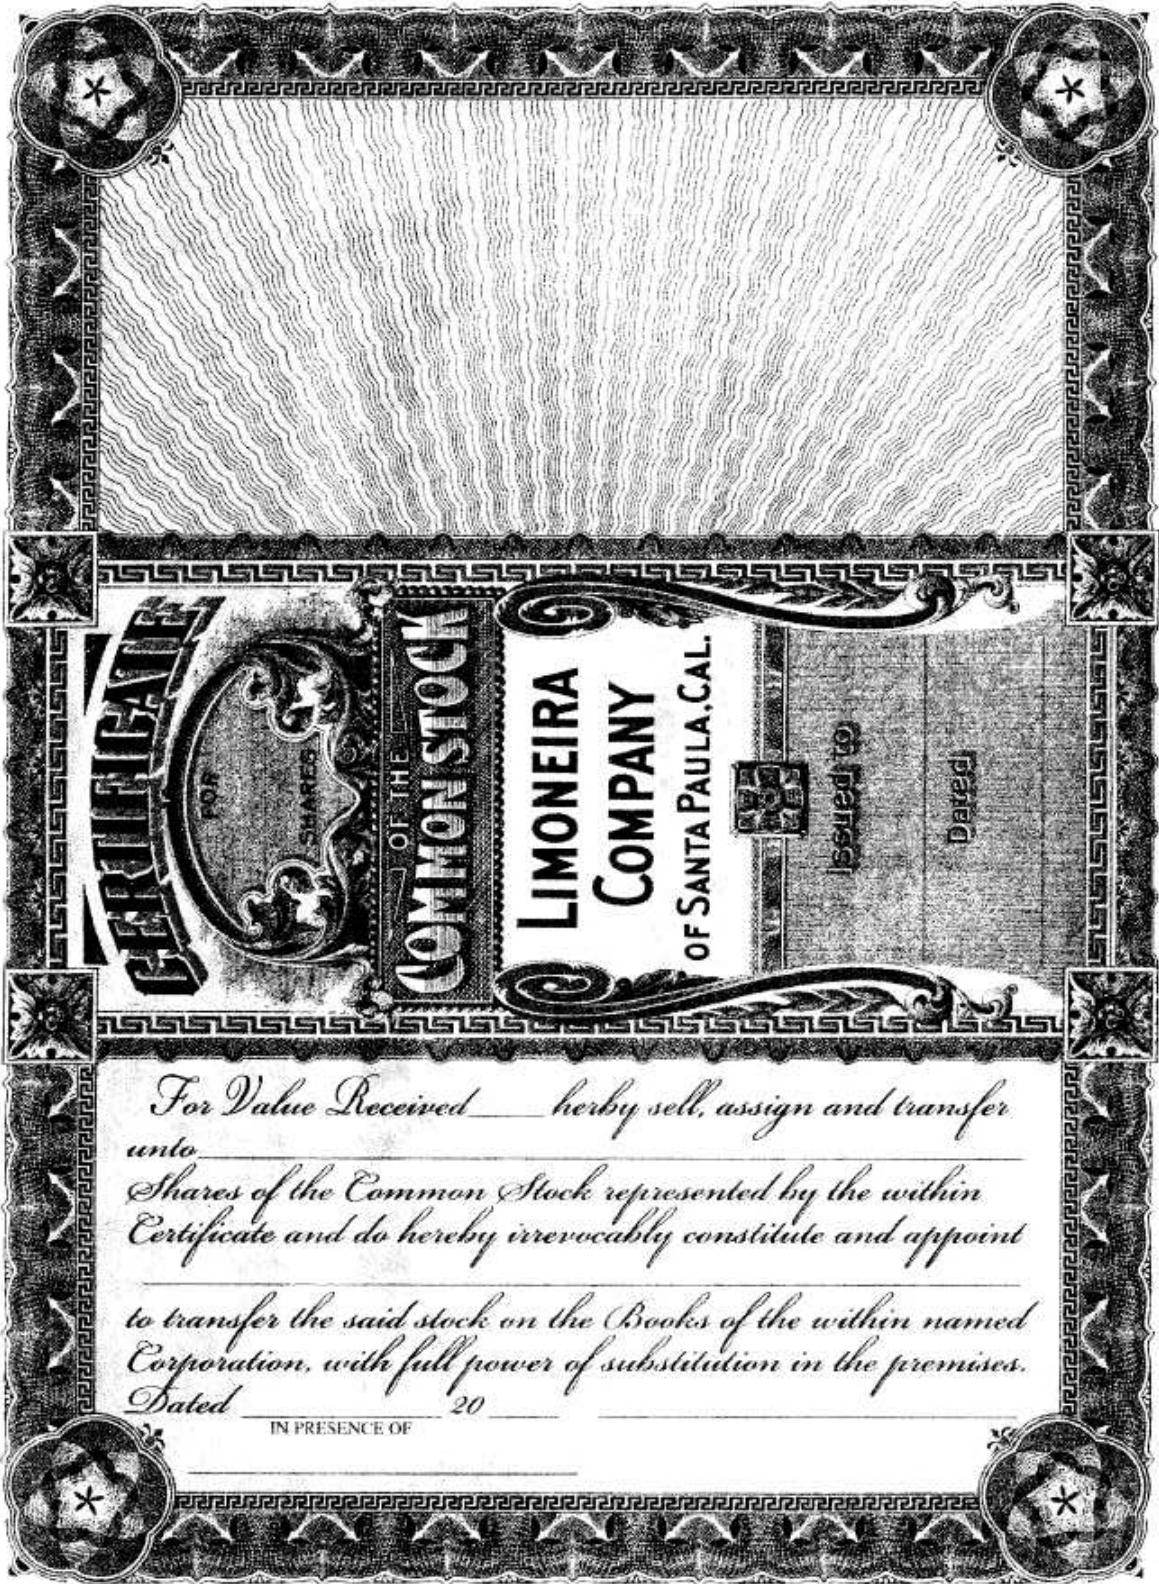 CERTIFICATE
FOR
SHARES
OF THE
COMMON STOCK
LIMONEIRA
COMPANY
OF SANTA PAULA, CAL.
Issued to
Dated
For Value Received____ herby sell, assign and transfer
unto
Shares of the Common Stock represented by the within
Certificate and do hereby irrevocably constitute and appoint
to transfer the said stock on the Books of the within named
Corporation, with full power of substitution in the premises.
Dated ____ 20 ____
IN PRESENCE OF